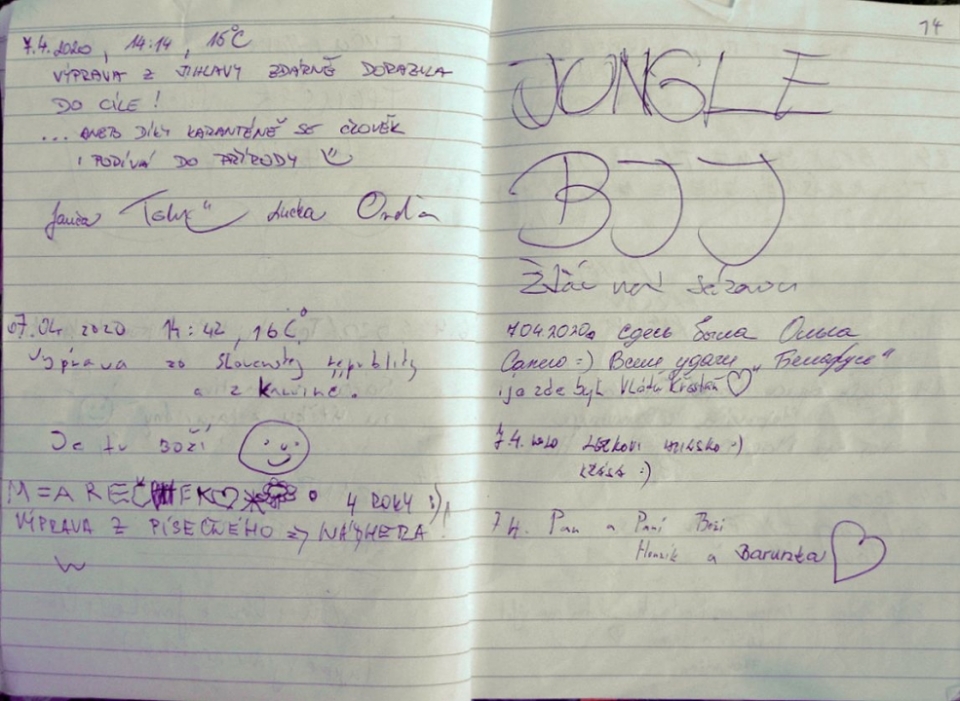 7.4.2020, 14:14, 15°C
VÝPRAVA Z JIHLAVY ZDÁRNĚ DORAZILA
DO CÍLE!
... ANEB DÍKY KARANTÉNĚ SE ČLOVĚK
I PODÍVÁ DO PŘÍRODY
Janča Lucka Ondra
07.04.2020 14:42, 16C°
Výprava ze Slovenskej republiky
a z Karviné.
Je tu BOŽÍ
MAREČEK 4 ROKY :),
VÝPRAVA Z PÍSEČNÉHO => NÁDHERA
14
JUNGLE
BJJ
Žďár nad Sázavou
7.04.2020. здесь была Ольга
Сапего =) Всем удачи "Беларусь"
i ja zde byl Vláďa
7.4. 2020 :)
KRÁSA :)
7.4. Pan a Paní Boží
Honzík a Barunka